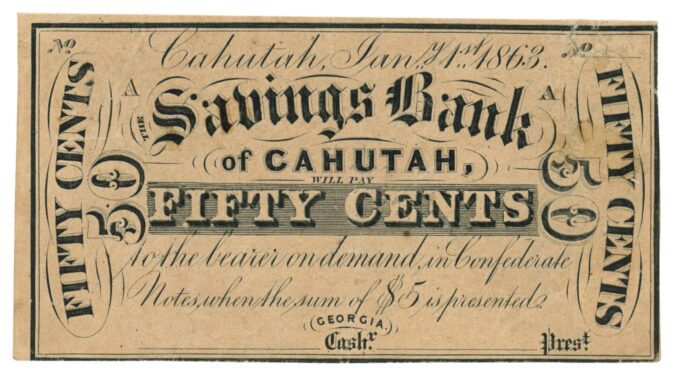 No No
Cahutah, Jany 1st 1863.
A A
THE Savings Bank
of CAHUTAH,
WILL PAY
FIFTY CENTS
FIFTY CENTS
FIFTY CENTS
50 50
to the bearer on demand, in Confederate
Notes, when the sum of $5 is presented.
GEORGIA.
Cashr. Prest.